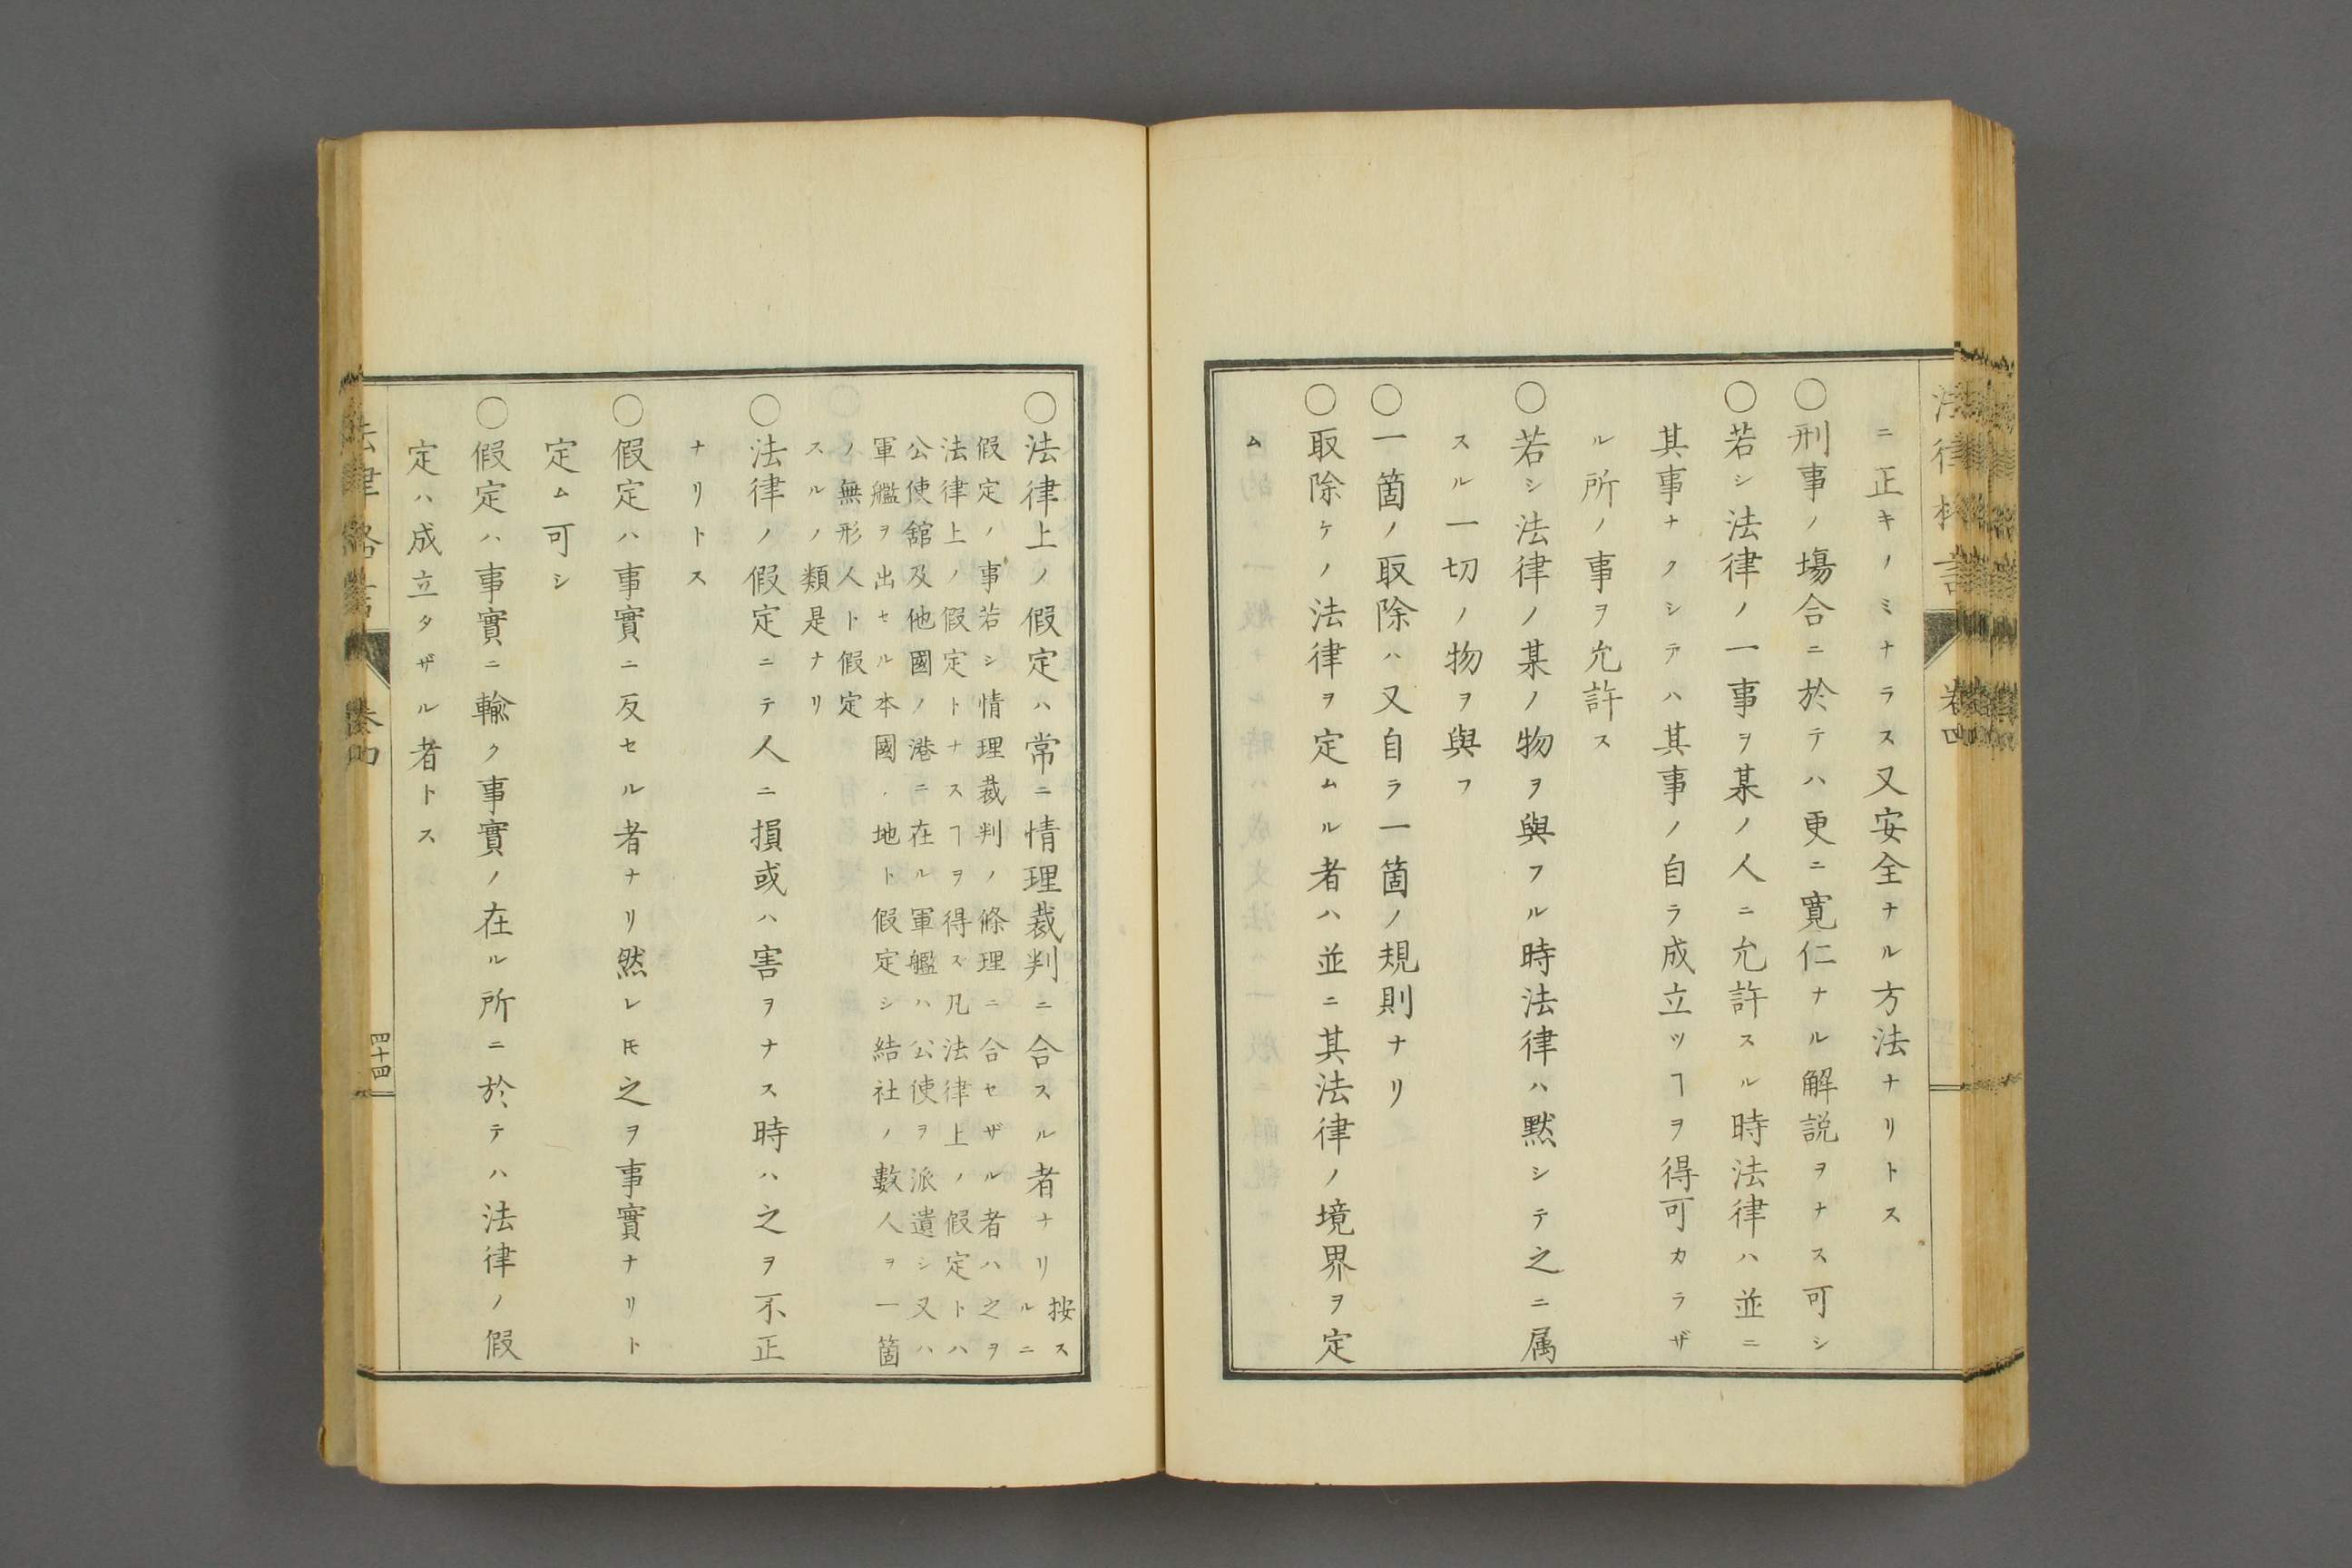 ニ正キノミナラス又安全ナル方法ナリトス
〇刑事ノ塲合ニ於テハ更ニ寛仁ナル解説ヲナス可シ
〇若シ法律ノ一事ヲ某ノ人ニ允許スル時法律ハ並ニ
其事ナクシテハ其事ノ自ラ成立ツヿヲ得可カラザ
ル所ノ事ヲ允許ス
〇若シ法律ノ某ノ物ヲ與フル時法律ハ黙シテ之ニ属
スル一切ノ物ヲ與フ
〇一箇ノ取除ハ又自ラ一箇ノ規則ナリ
〇取除ケノ法律ヲ定ムル者ハ並ニ其法律ノ境界ヲ定
ム
〇法律上ノ假定ハ常ニ情理裁判ニ合スル者ナリ
按ス
ルニ
假定ノ事若シ情理裁判ノ條理ニ合セザル者ハ之ヲ
法律上ノ假定トナスヿヲ得ズ凡法律上ノ假定トハ
公使舘及他國ノ港ニ在ル軍艦ハ公使ヲ派遣シ又ハ
軍艦ヲ出セル本國ノ地ト假定シ結社ノ數人ヲ一箇
ノ無形人ト假定
スルノ類是ナリ
〇法律ノ假定ニテ人ニ損或ハ害ヲナス時ハ之ヲ不正
ナリトス
〇假定ハ事實ニ反セル者ナリ然レ𪜈之ヲ事實ナリト
定ム可シ
〇假定ハ事實ニ輸ク事實ノ在ル所ニ於テハ法律ノ假
定ハ成立タザル者トス
巻四
四十四